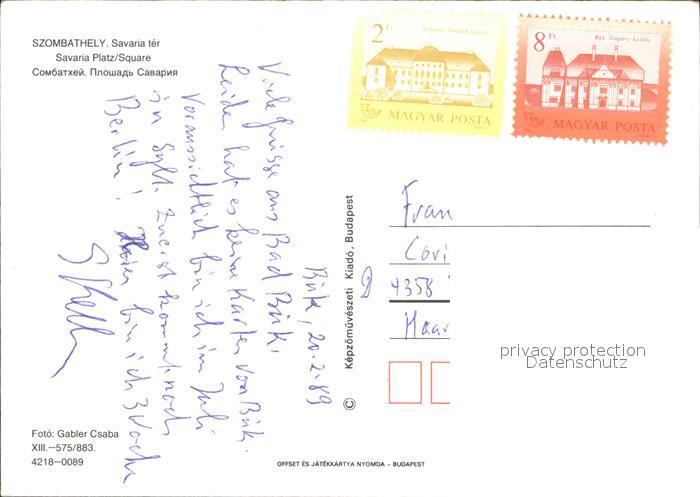 SZOMBATHELY. Savaria tér
Savaria Platz/Square
Сомбатхей. Площадь Савария
2 Ft
MAGYAR POSTA
8 Ft
Bük. Szapáry-kastély
MAGYAR POSTA
Bük, 20.2.89
Viele Grüsse aus Bad Bük.
Leider hat es keine Karten von Bük.
Voraussichtlich bin ich im Juli
in Sylt. Zuerst kommt noch
Berlin! Hier bin ich 3 Woche
Képzőművészeti Kiadó, Budapest
©
Fran
Cori
D 4358
Haar
privacy protection
Datenschutz
Fotó: Gabler Csaba
XIII.—575/883.
4218—0089
OFFSET ÉS JÁTÉKKÁRTYA NYOMDA – BUDAPEST